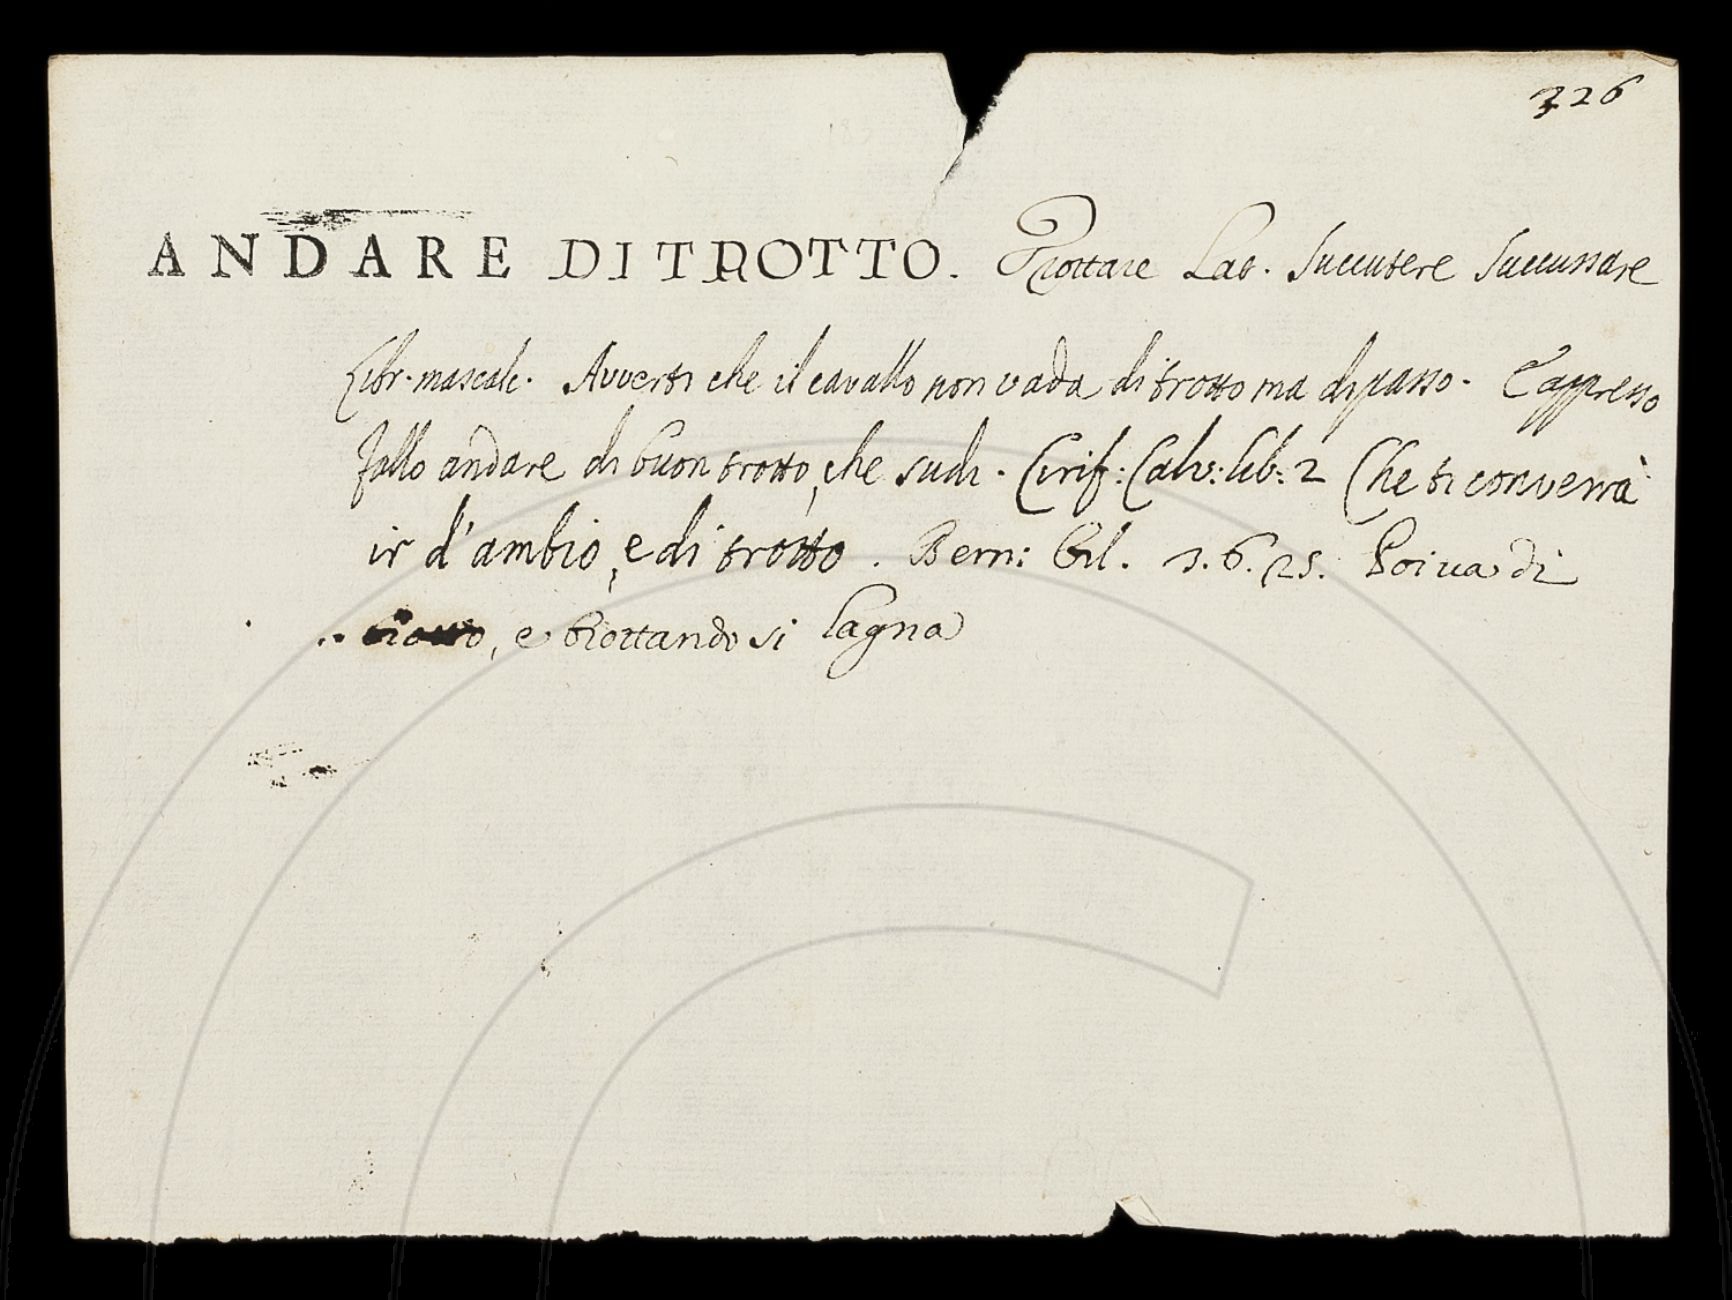 326
ANDARE DI TROTTO. Trottare Lat. Succutere Succussare
Libr. mascalc. Avverti che il cavallo non vada di trotto ma di passo. E appresso
fallo andare di buon trotto, che sudi. Cirif: Calv: lib: 2 Che ti converrà
ir d'ambio, e di trotto. Bern: Orl. 3. 6. 25. Poi va di
trotto, e trottando si lagna